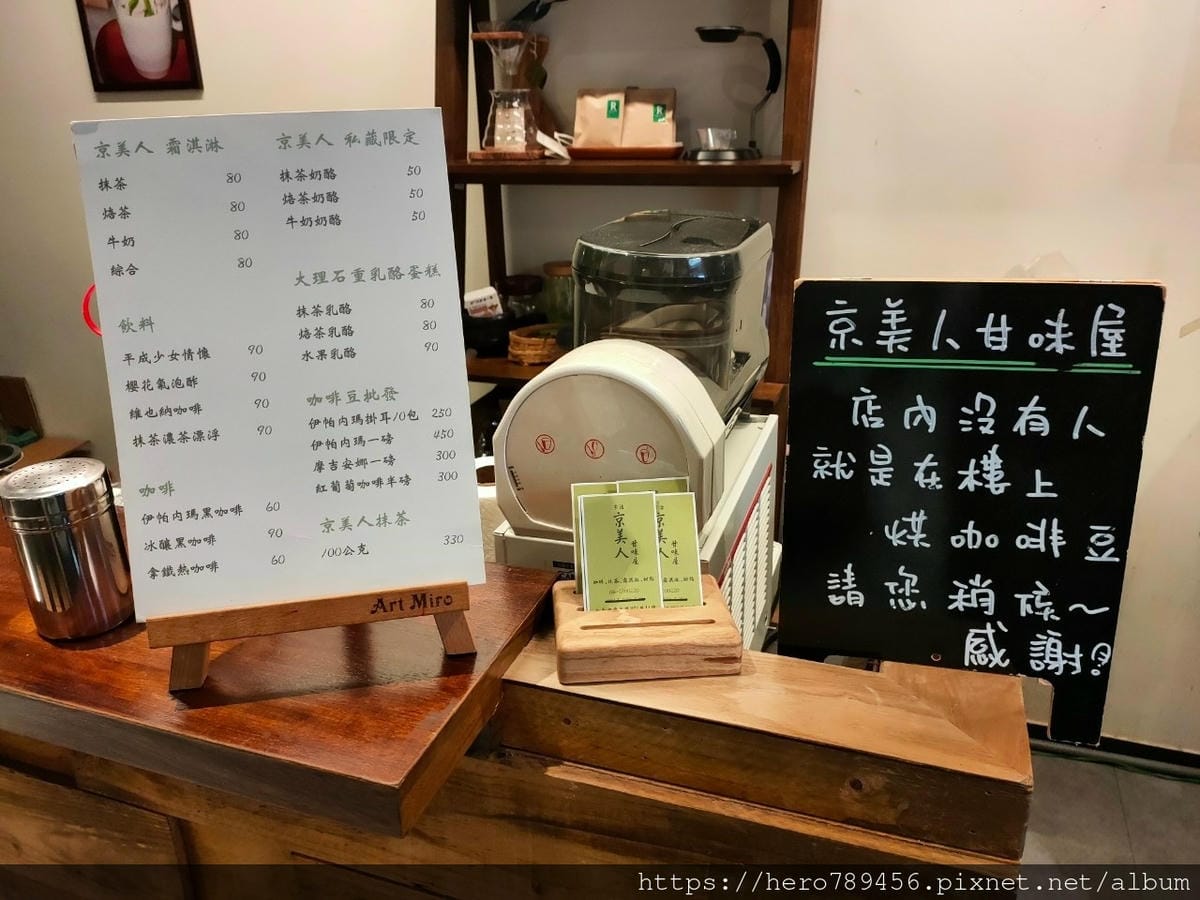 京美人 霜淇淋
抹茶 80
焙茶 80
牛奶 80
綜合 80
飲料
平成少女情懷 90
櫻花氣泡酢 90
維也納咖啡 90
抹茶濃茶漂浮 90
咖啡
伊帕內瑪黑咖啡 60
冰釀黑咖啡 90
拿鐵熱咖啡 60
京美人 私藏限定
抹茶奶酪 50
焙茶奶酪 50
牛奶奶酪 50
大理石重乳酪蛋糕
抹茶乳酪 80
焙茶乳酪 80
水果乳酪 90
咖啡豆批發
伊帕內瑪掛耳10包 250
伊帕內瑪一磅 450
摩吉安娜一磅 300
紅葡萄咖啡半磅 300
京美人抹茶
100公克 330
Art Miro
京美人
甘味屋
京美人甘味屋
店內沒有人
就是在樓上
烘咖啡豆
請您稍候~
感謝
https://hero789456.pixnet.net/album